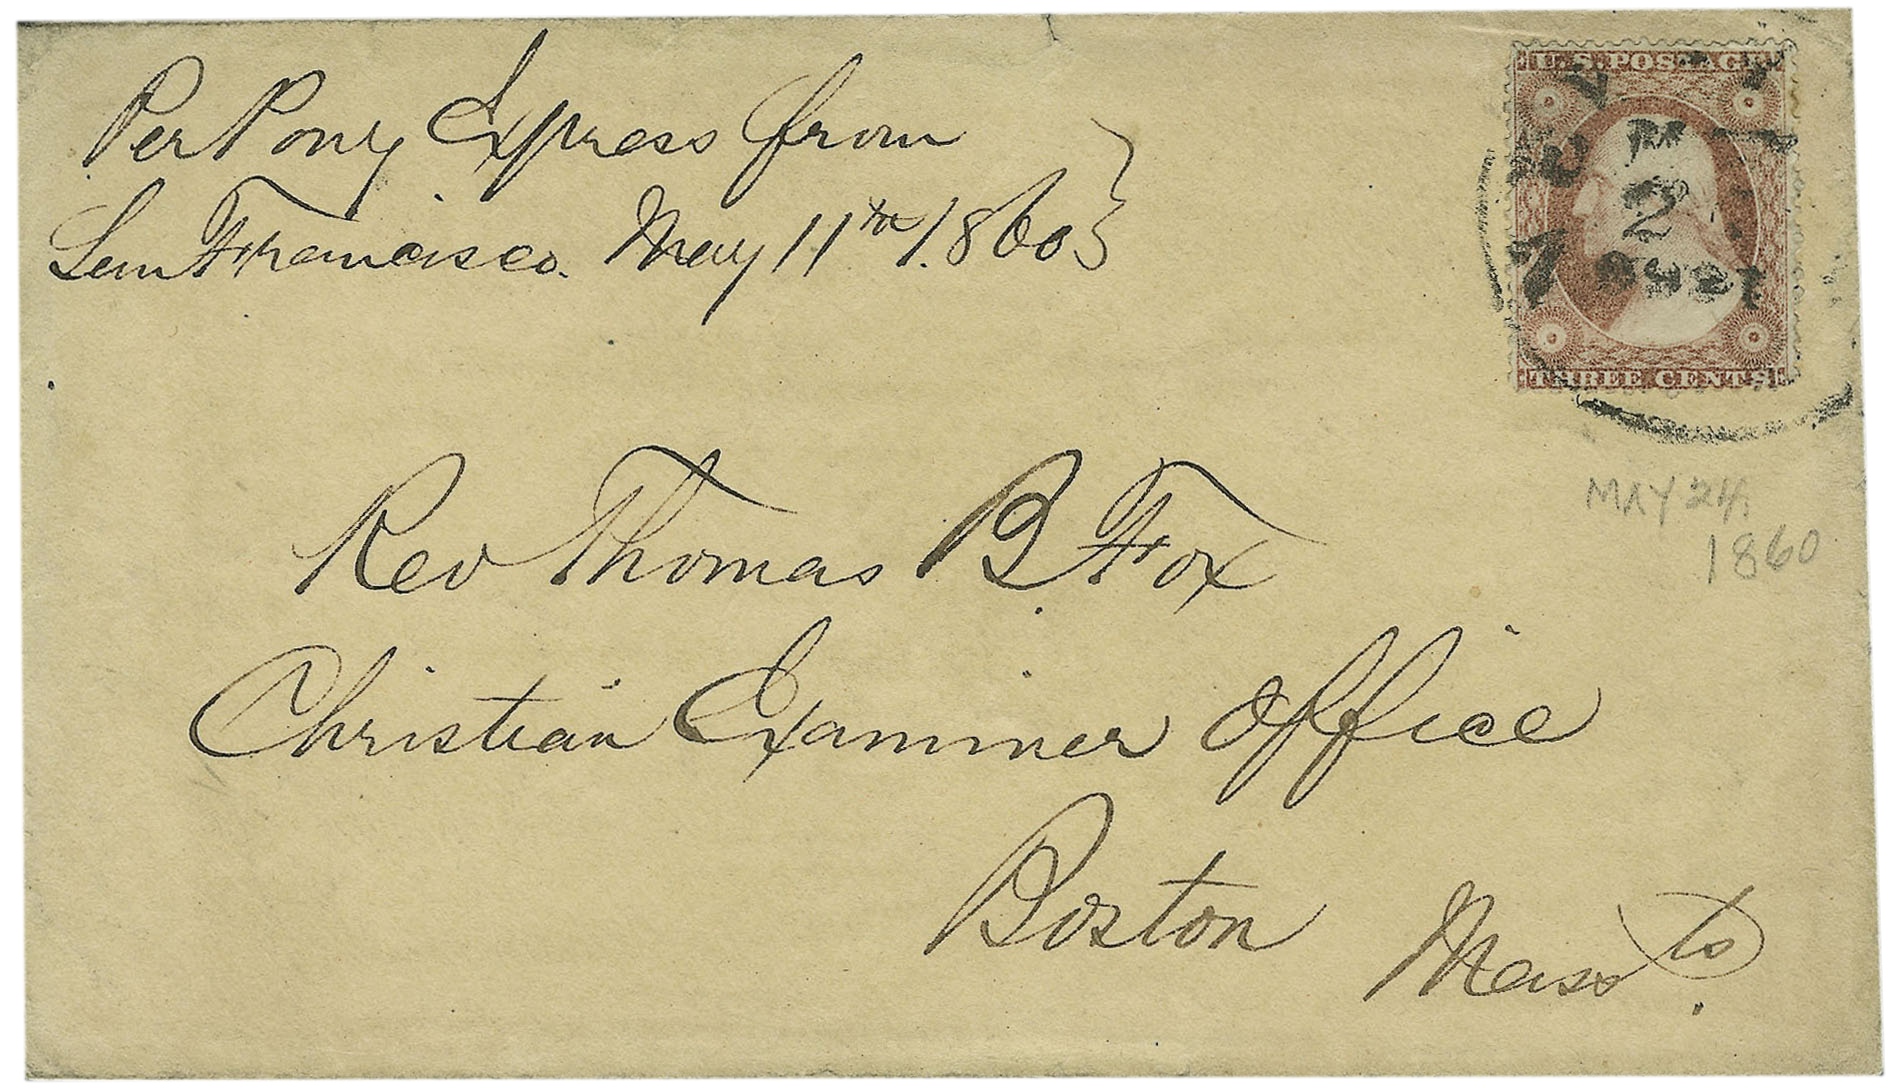 Per Pony Express from
San Francisco. May 11th 1860
U.S. POSTAGE
THREE CENTS
MAY 24,
1860
Rev Thomas B Fox
Christian Examiner Office
Boston
Massts.